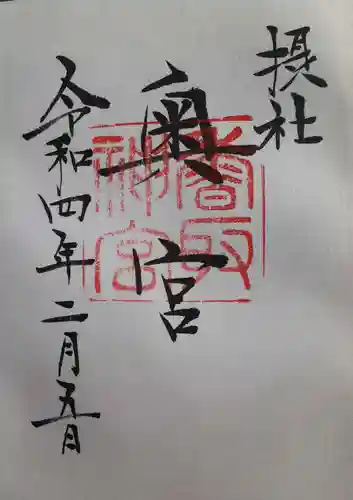 摂社
奥宮
香取神宮
令和四年二月五月